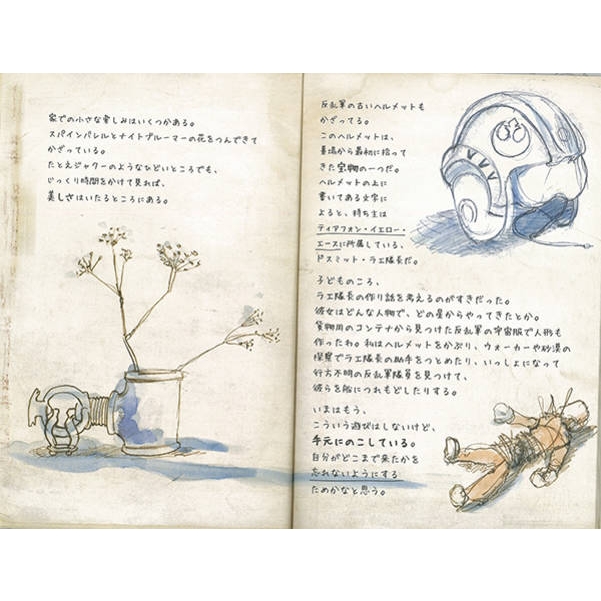 家での小さな楽しみはいくつかある。
スパインバレルとナイトブルーマーの花をつんできて
かざっている。
たとえジャクーのようなひどいところでも、
じっくり時間をかけて見れば、
美しさはいたるところにある。
反乱軍の古いヘルメットも
かざってる。
このヘルメットは、
墓場から最初に拾って
きた宝物の一つだ。
ヘルメットの上に
書いてある文字に
よると、持ち主は
ティアフォン・イエロー・
エースに所属している、
ドスミット・ラエ隊長だ。
子どものころ、
ラエ隊長の作り話を考えるのがすきだった。
彼女はどんな人物で、どの星からやってきたとか。
貨物用のコンテナから見つけた反乱軍の宇宙服で人形も
作ったわ。私はヘルメットをかぶり、ウォーカーや砂漠の
探索でラエ隊長の助手をつとめたり、いっしょになって
行方不明の反乱軍隊員を見つけて、
彼らを船につれもどしたりする。
いまはもう、
こういう遊びはしないけど、
手元にのこしている。
自分がどこまで来たかを
忘れないようにする
ためかなと思う。